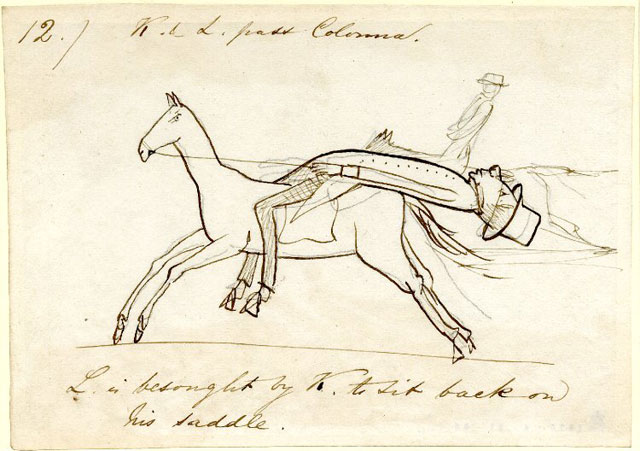 12.) K. & L. pass Colonna.
L. is besought by K. to sit back on
his saddle.